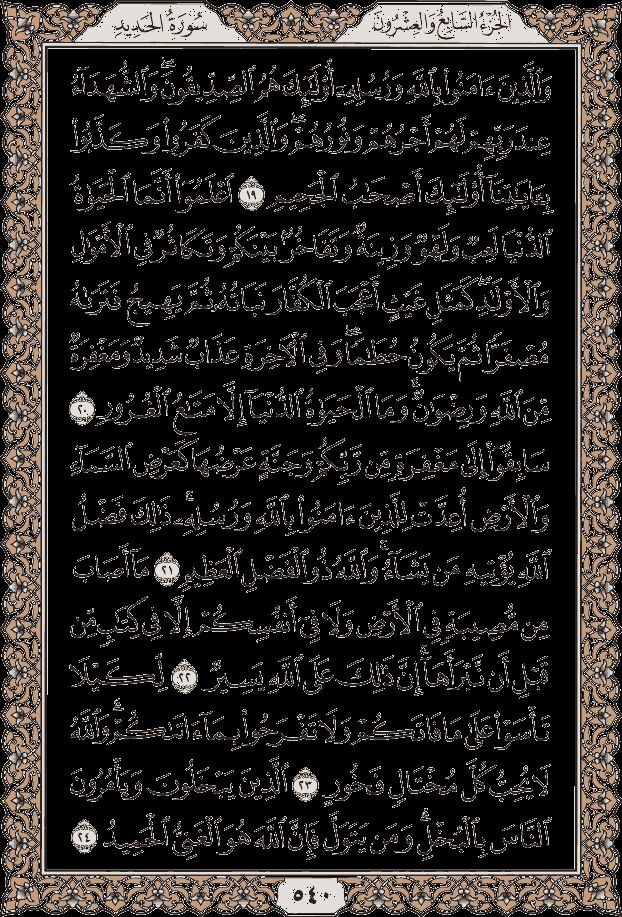 الجزء السابع والعشرون
سورة الحديد
وَالَّذِينَ ءَامَنُوا۟ بِاللَّهِ وَرُسُلِهِۦٓ أُو۟لَٰٓئِكَ هُمُ الصِّدِّيقُونَ ۖ وَالشُّهَدَآءُ
عِندَ رَبِّهِمْ لَهُمْ أَجْرُهُمْ وَنُورُهُمْ ۖ وَالَّذِينَ كَفَرُوا۟ وَكَذَّبُوا۟
بِـَٔايَٰتِنَآ أُو۟لَٰٓئِكَ أَصْحَٰبُ الْجَحِيمِ ١٩ اعْلَمُوٓا۟ أَنَّمَا الْحَيَوٰةُ
الدُّنْيَا لَعِبٌ وَلَهْوٌ وَزِينَةٌ وَتَفَاخُرٌۢ بَيْنَكُمْ وَتَكَاثُرٌ فِى الْأَمْوَٰلِ
وَالْأَوْلَٰدِ ۖ كَمَثَلِ غَيْثٍ أَعْجَبَ الْكُفَّارَ نَبَاتُهُۥ ثُمَّ يَهِيجُ فَتَرَىٰهُ
مُصْفَرًّا ثُمَّ يَكُونُ حُطَٰمًا ۖ وَفِى الْءَاخِرَةِ عَذَابٌ شَدِيدٌ وَمَغْفِرَةٌ
مِّنَ اللَّهِ وَرِضْوَٰنٌ ۚ وَمَا الْحَيَوٰةُ الدُّنْيَآ إِلَّا مَتَٰعُ الْغُرُورِ ٢٠
سَابِقُوٓا۟ إِلَىٰ مَغْفِرَةٍ مِّن رَّبِّكُمْ وَجَنَّةٍ عَرْضُهَا كَعَرْضِ السَّمَآءِ
وَالْأَرْضِ أُعِدَّتْ لِلَّذِينَ ءَامَنُوا۟ بِاللَّهِ وَرُسُلِهِۦ ۚ ذَٰلِكَ فَضْلُ
اللَّهِ يُؤْتِيهِ مَن يَشَآءُ ۚ وَاللَّهُ ذُو الْفَضْلِ الْعَظِيمِ ٢١ مَآ أَصَابَ
مِن مُّصِيبَةٍ فِى الْأَرْضِ وَلَا فِىٓ أَنفُسِكُمْ إِلَّا فِى كِتَٰبٍ مِّن
قَبْلِ أَن نَّبْرَأَهَآ ۚ إِنَّ ذَٰلِكَ عَلَى اللَّهِ يَسِيرٌ ٢٢ لِّكَيْلَا
تَأْسَوْا۟ عَلَىٰ مَا فَاتَكُمْ وَلَا تَفْرَحُوا۟ بِمَآ ءَاتَىٰكُمْ ۗ وَاللَّهُ
لَا يُحِبُّ كُلَّ مُخْتَالٍ فَخُورٍ ٢٣ الَّذِينَ يَبْخَلُونَ وَيَأْمُرُونَ
النَّاسَ بِالْبُخْلِ ۗ وَمَن يَتَوَلَّ فَإِنَّ اللَّهَ هُوَ الْغَنِىُّ الْحَمِيدُ ٢٤
٥٤٠